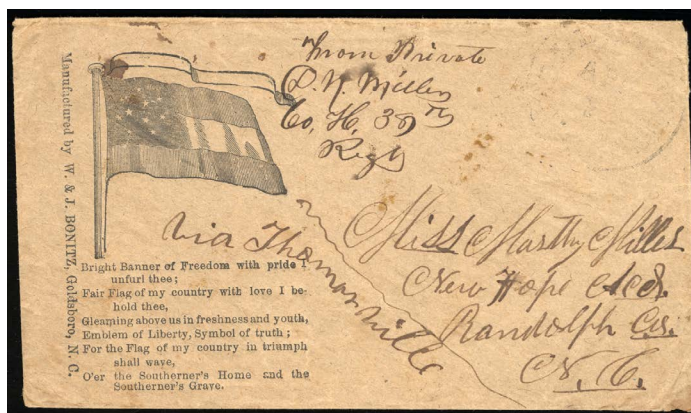 From Private
D. N. Miller
Co, H, 38th
Regt
Manufactured by W. & J. BONITZ, Goldsboro, N. C.
Bright Banner of Freedom with pride I
unfurl thee;
Fair Flag of my country with love I be-
hold thee,
Gleaming above us in freshness and youth,
Emblem of Liberty, Symbol of truth;
For the Flag of my country in triumph
shall wave,
O'er the Southerner's Home and the
Southerner's Grave.
via Thomasville
Miss Marthy Miller
New Hope
Randolph Co.
N. C.